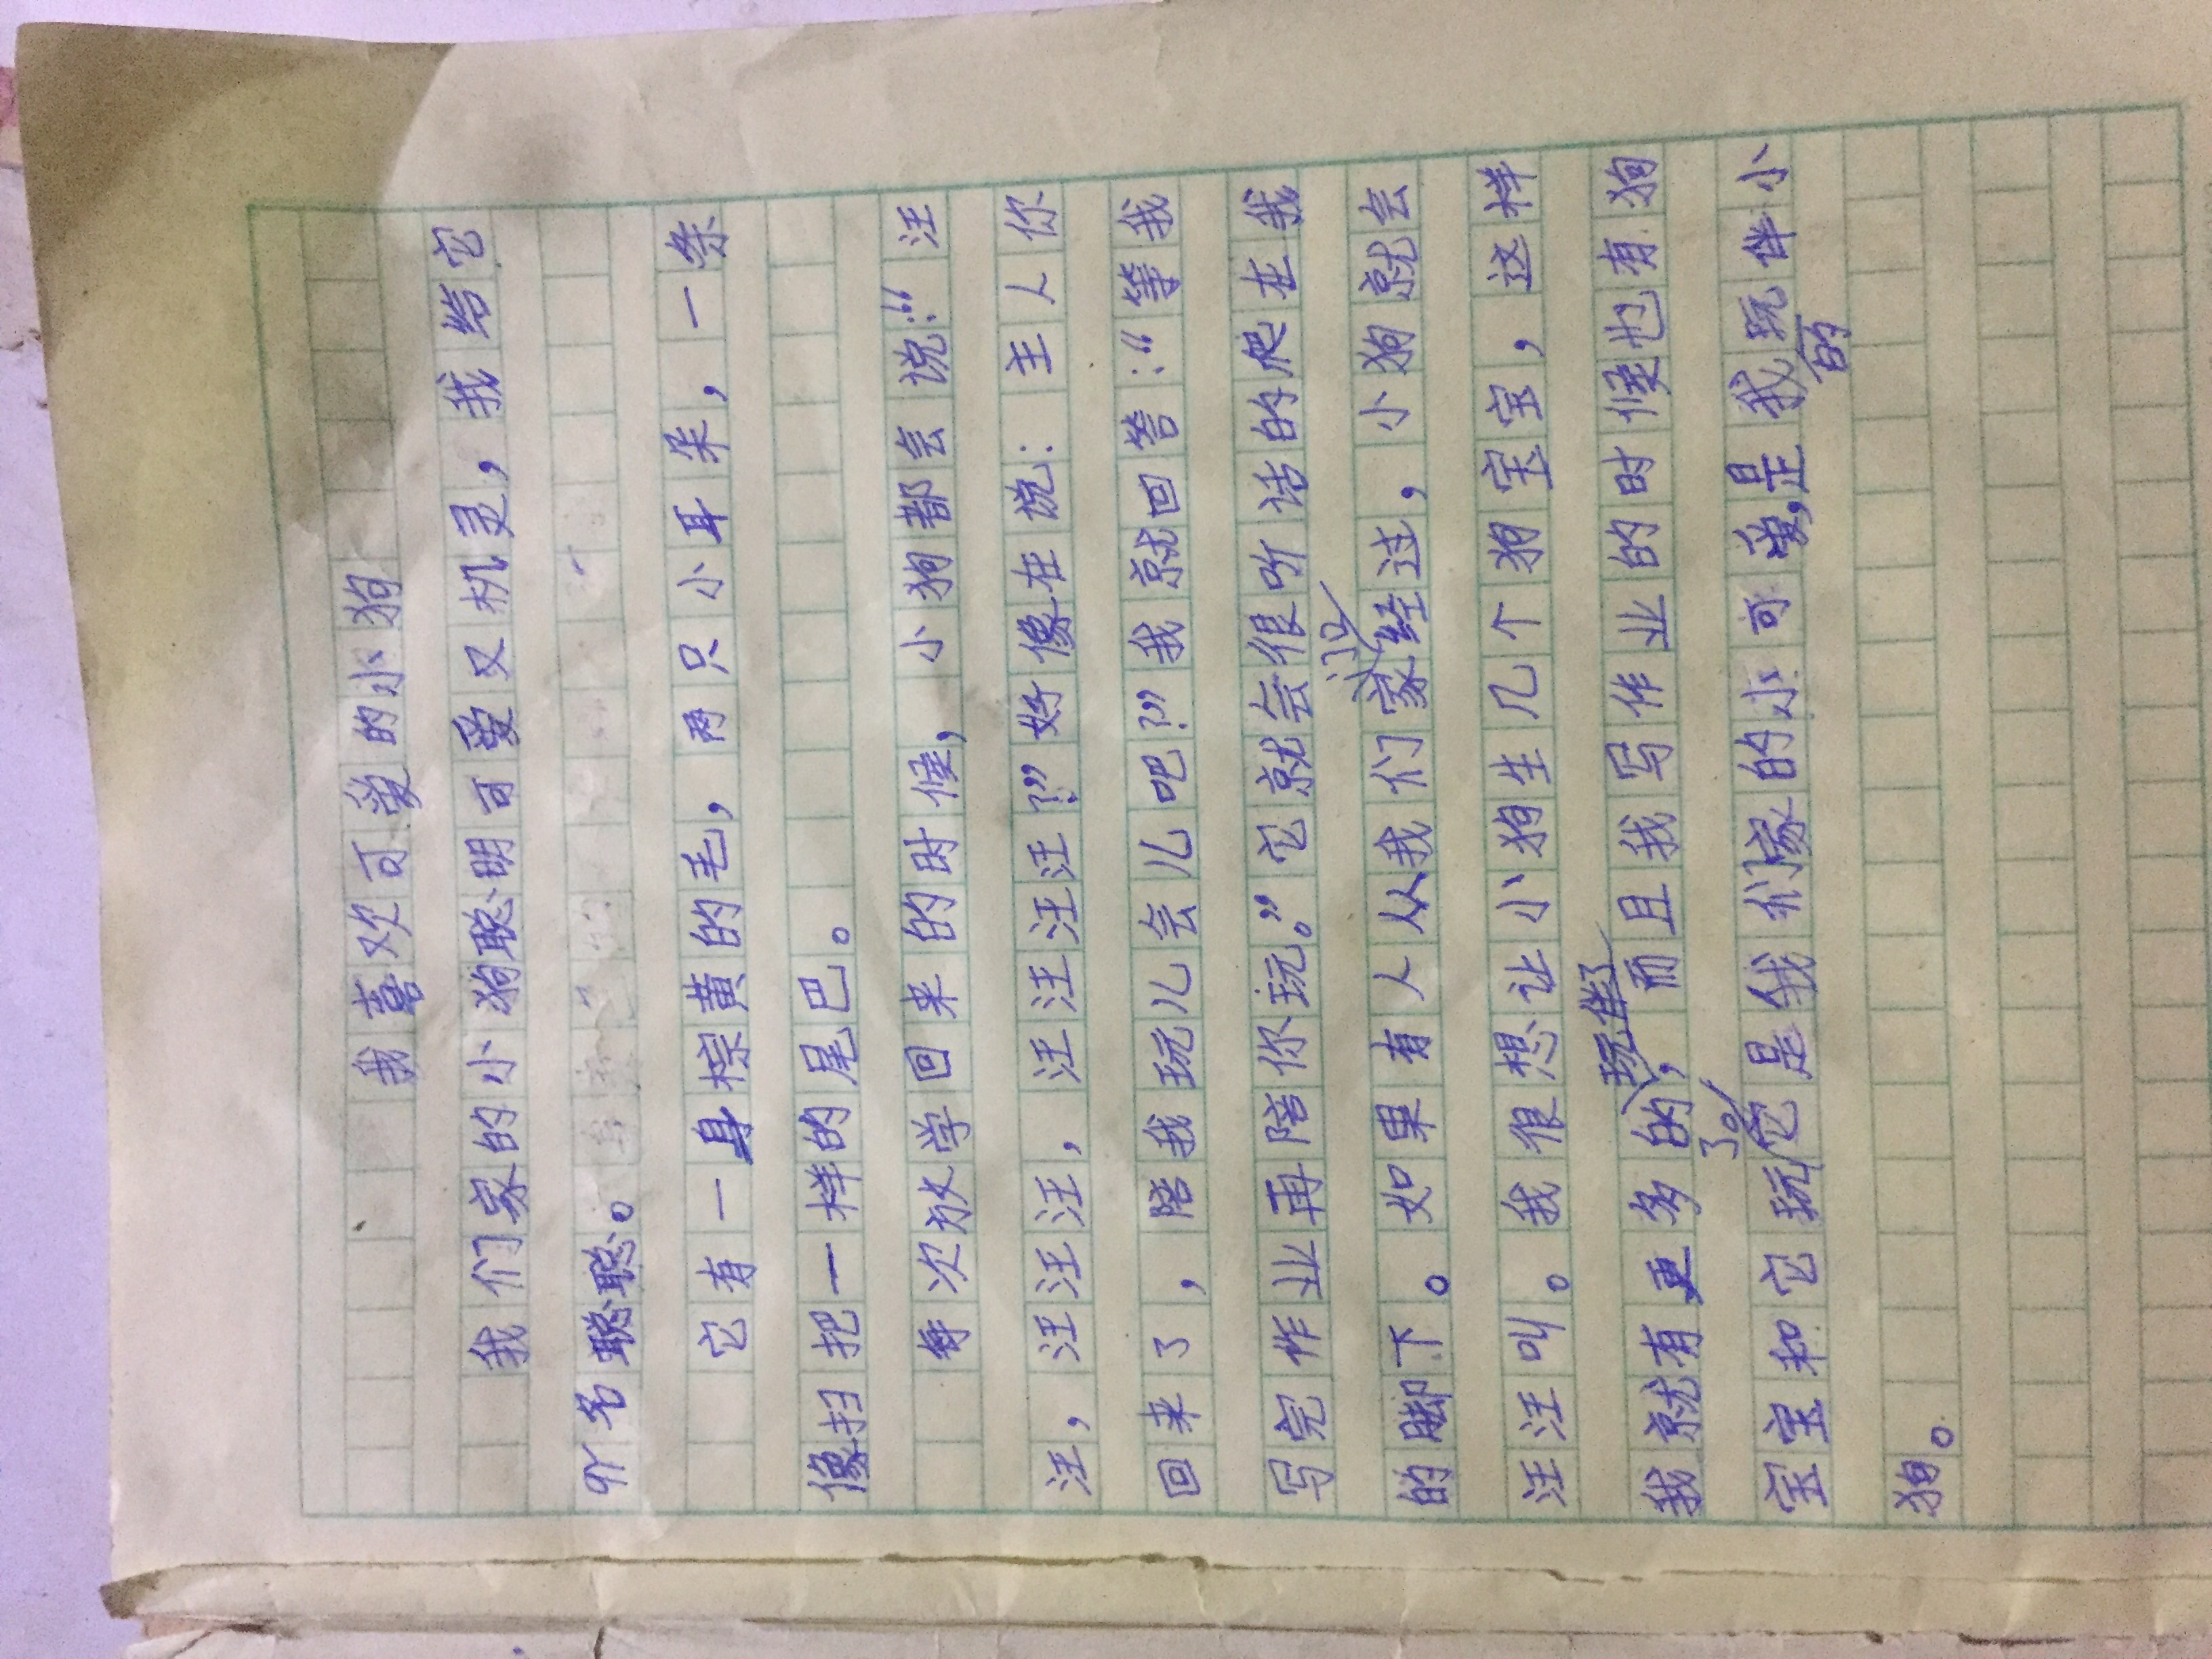 我喜欢可爱的小狗
我们家的小狗聪明可爱又机灵，我给它
名聪聪。
它有一身棕黄的毛，两只小耳朵，一条
像扫把一样的尾巴。
每次放学回来的时候，小狗都会说：“汪
汪，汪汪汪，汪汪汪汪？”好像在说：主人你
回来了，陪我玩儿会儿吧？”我就回答：“等我
写完作业再陪你玩。”它就会很听话的爬在我
的脚下。如果有人从我们家门口经过，小狗就会
汪汪叫。我很想让小狗生几个狗宝宝，这样
我就有更多的玩伴了，而且我写作业的时候也有狗
宝宝和它玩了。它是我们家的小可爱，是我的玩伴小
狗。